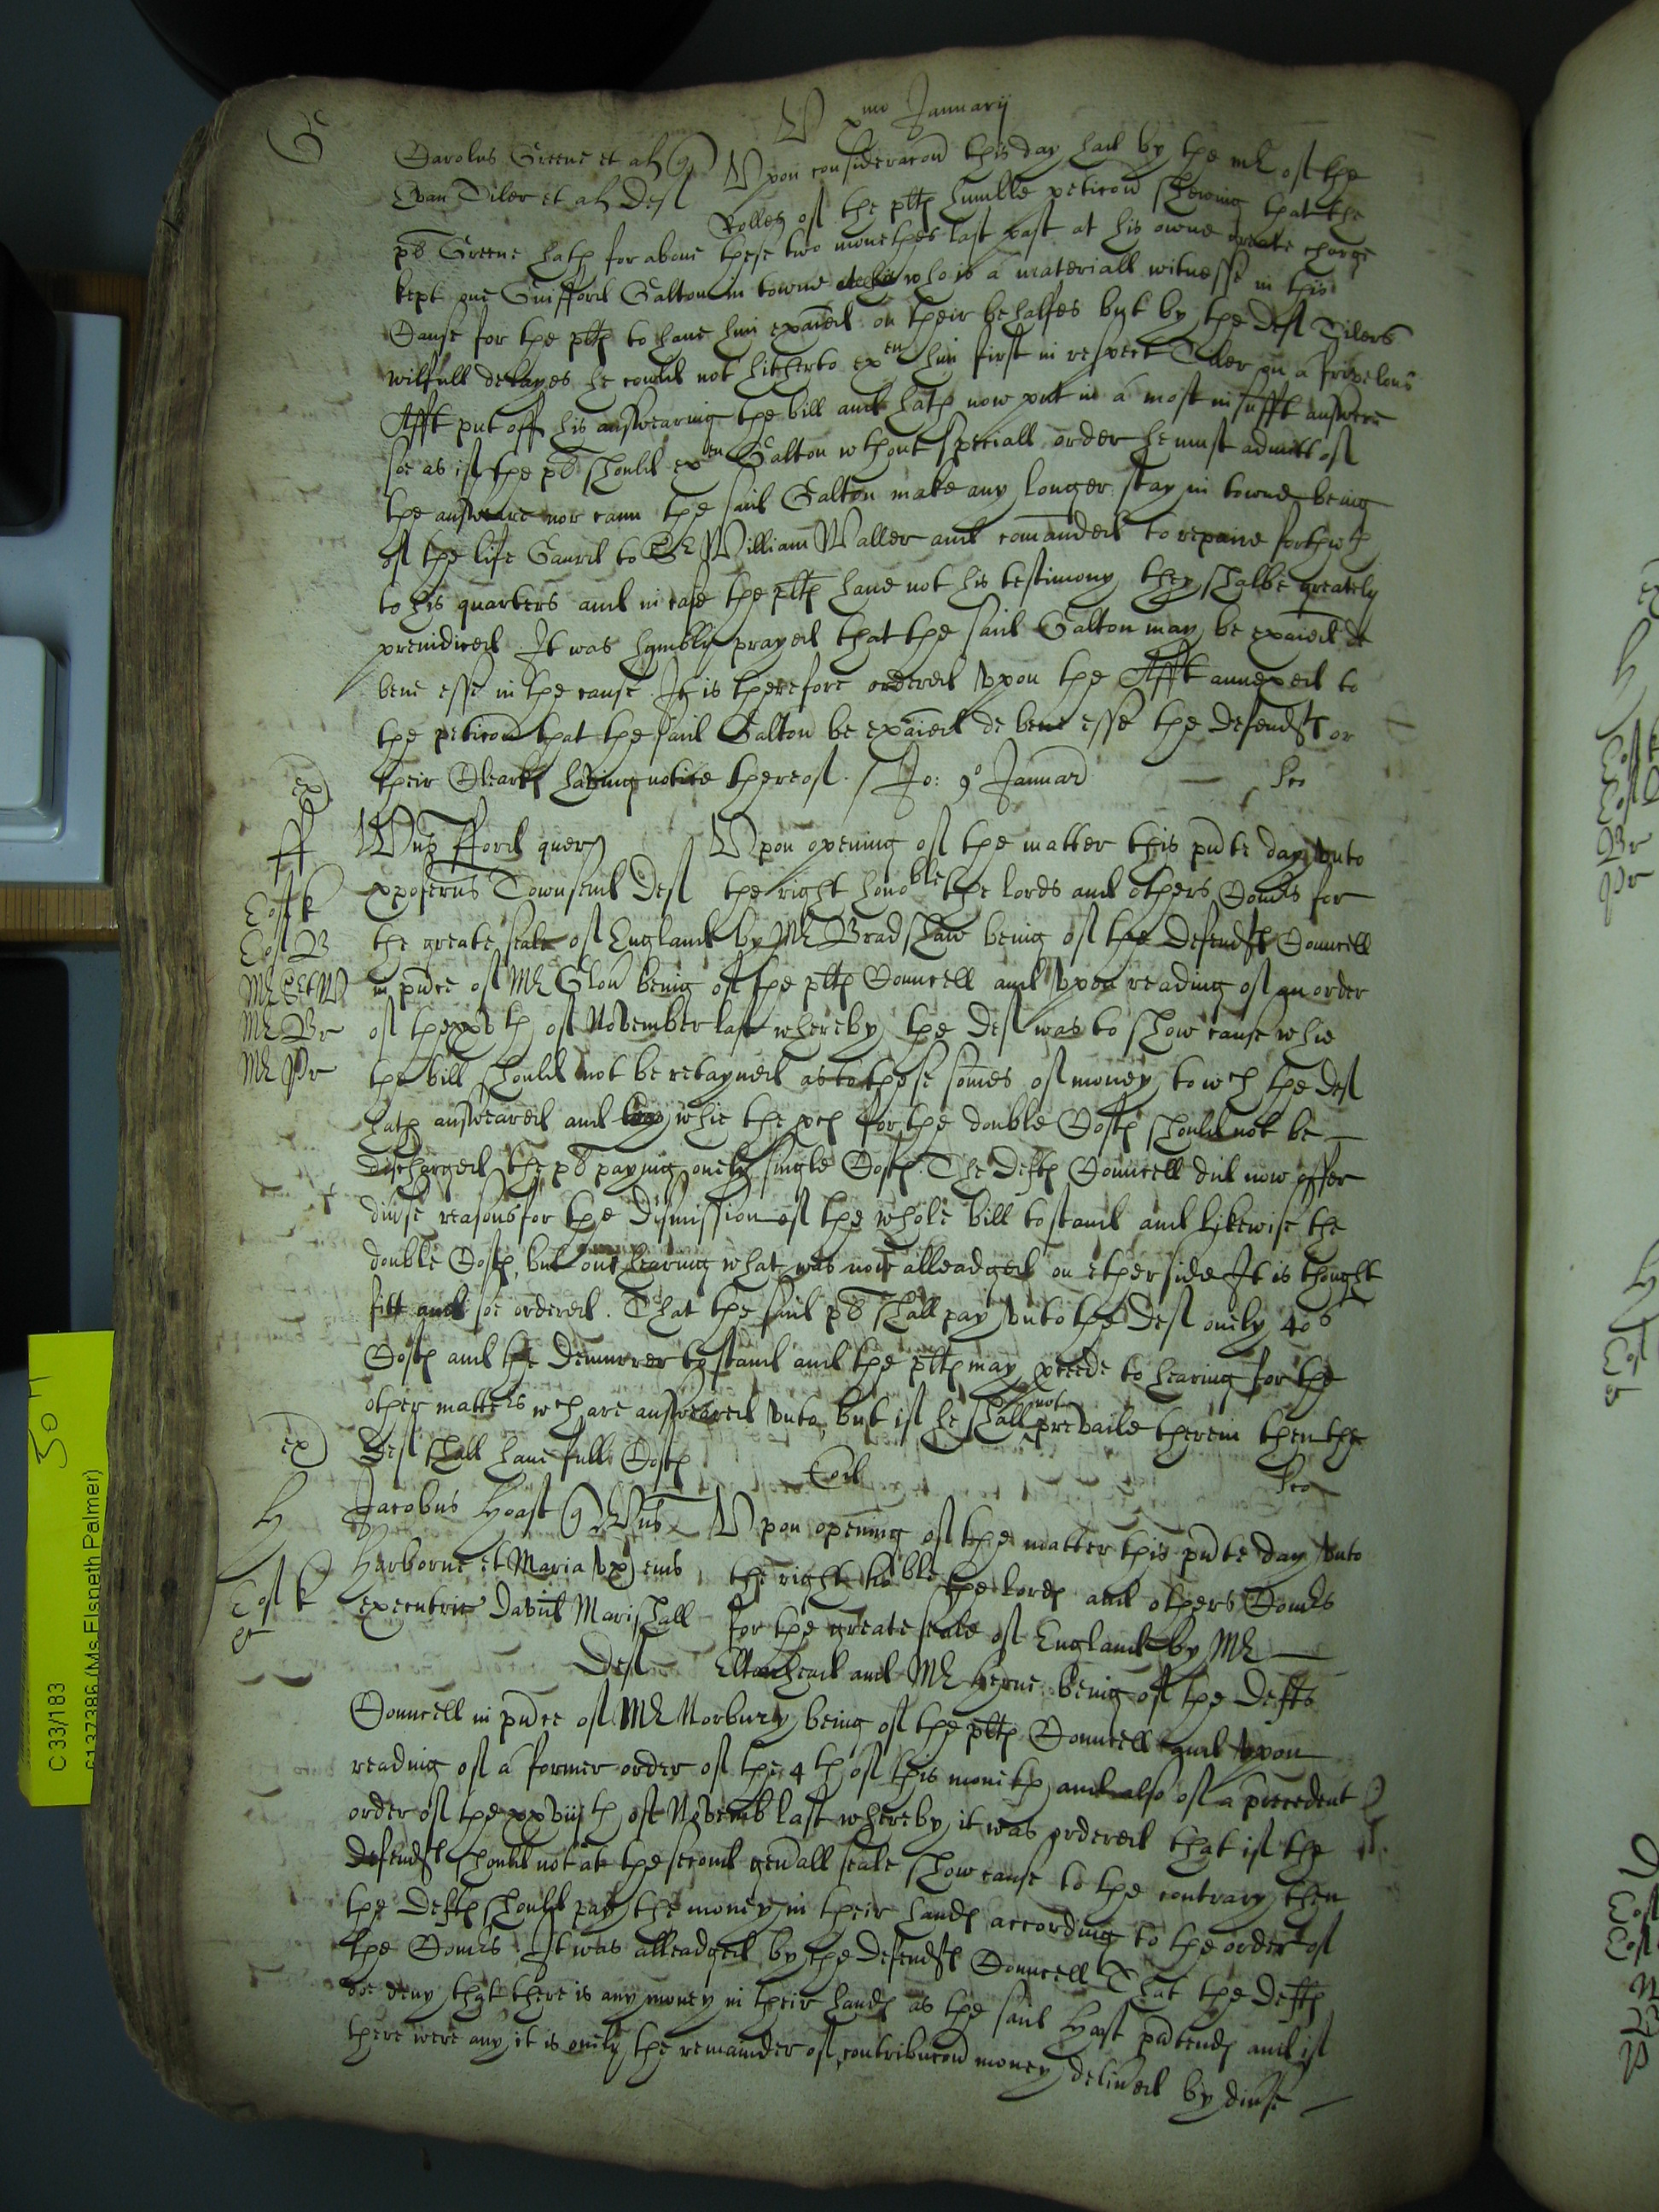 V xmo January
G
Carolus Greene et al q
Evan Tiler et al Def
Upon consideracon this day had by the mr of the
Rolles of the plts humble peticon shewing that the
pt Greene hath for above these two monethes last past at his owne greate charge
kept one Guifford Galton in towne who is a materiall witnesse in this
Cause for the plts to have him exaied on their behalfes but by the Def Tilers
wilfull delayes he could not hitherto exen him first in respect Tiler on a frivelous
Afft put off his answearing the bill and hath now put in a most insufft answere
soe as if the pt should exen Galton wthout speciall order he must admitt of
the answeare nor cann the said Galton make any longer stay in towne being
of the life Gaurd to Sr William Waller and comanded to repaire forthwth
to his quarters and in case the plts have not his testimony they shalbe greately
preiudiced It was humbly prayed that the said Galton may be exaied de
bene esse in the cause. It is therefore ordered upon the Afft annexed to
the peticon that the said Galton be exaied de bene esse the defendts or
their Clearks having notice thereof. / Jo: 9o Januar
ex
ff
Wms fford quer
Townsend Def
Upon opening of the matter this pnte day unto
the right honoble the lords and others Comrs for
the greate seale of England by Mr Bradshaw being of the defendts Councell
in pnce of Mr Glou being of the plts Councell and upon reading of an order
of the xxvth of November last whereby the def was to show cause whie
the bill should not be retayned as to these somes of money to wch the def
hath answeared and whie the pces for the double Costs should not be
discharged the pt paying onely single Costs. The defts Councell did now offer
divse reasons for the dismission of the whole bill to stand and likewise the
double Costs, but on hearing what was now alleadged on ether side It is thought
fitt and soe ordered. That the said pt shall pay unto the def onely 40s
Costs and the demurrer to stand and the plts may pceede to hearing for the
other matters wch are answeared unto, but if he shall not prevaile therein then the
Def shall have full Costs
ex
H
Jacobus Hoast q Wms
Harborne et Maria ux eius
executric David Marishall
Def
Upon opening of the matter this pnte day unto
the right hoble the lords and others Comrs
for the greate seale of England by Mr
Eltonhead and Mr Herne being of the defts
Councell in pnce of Mr Norbury being of the plts Councell and upon
reading of a former order of the 4th of this moneth and also of a precedent
order of the xxviijth of Novemb last whereby it was ordered that if the
defendts should not at the second genall seale show cause to the contrary then
the defts should pay the money in their hands according to the order of
the Comrs It was alleadged by the defendts Councell That the defts
doe deny that there is any money in their hands as the said Hoast ptends and if
there were any it is onely the remainder of contribucon money delived by divse
C 33/183
(Ms Elspeth Palmer)